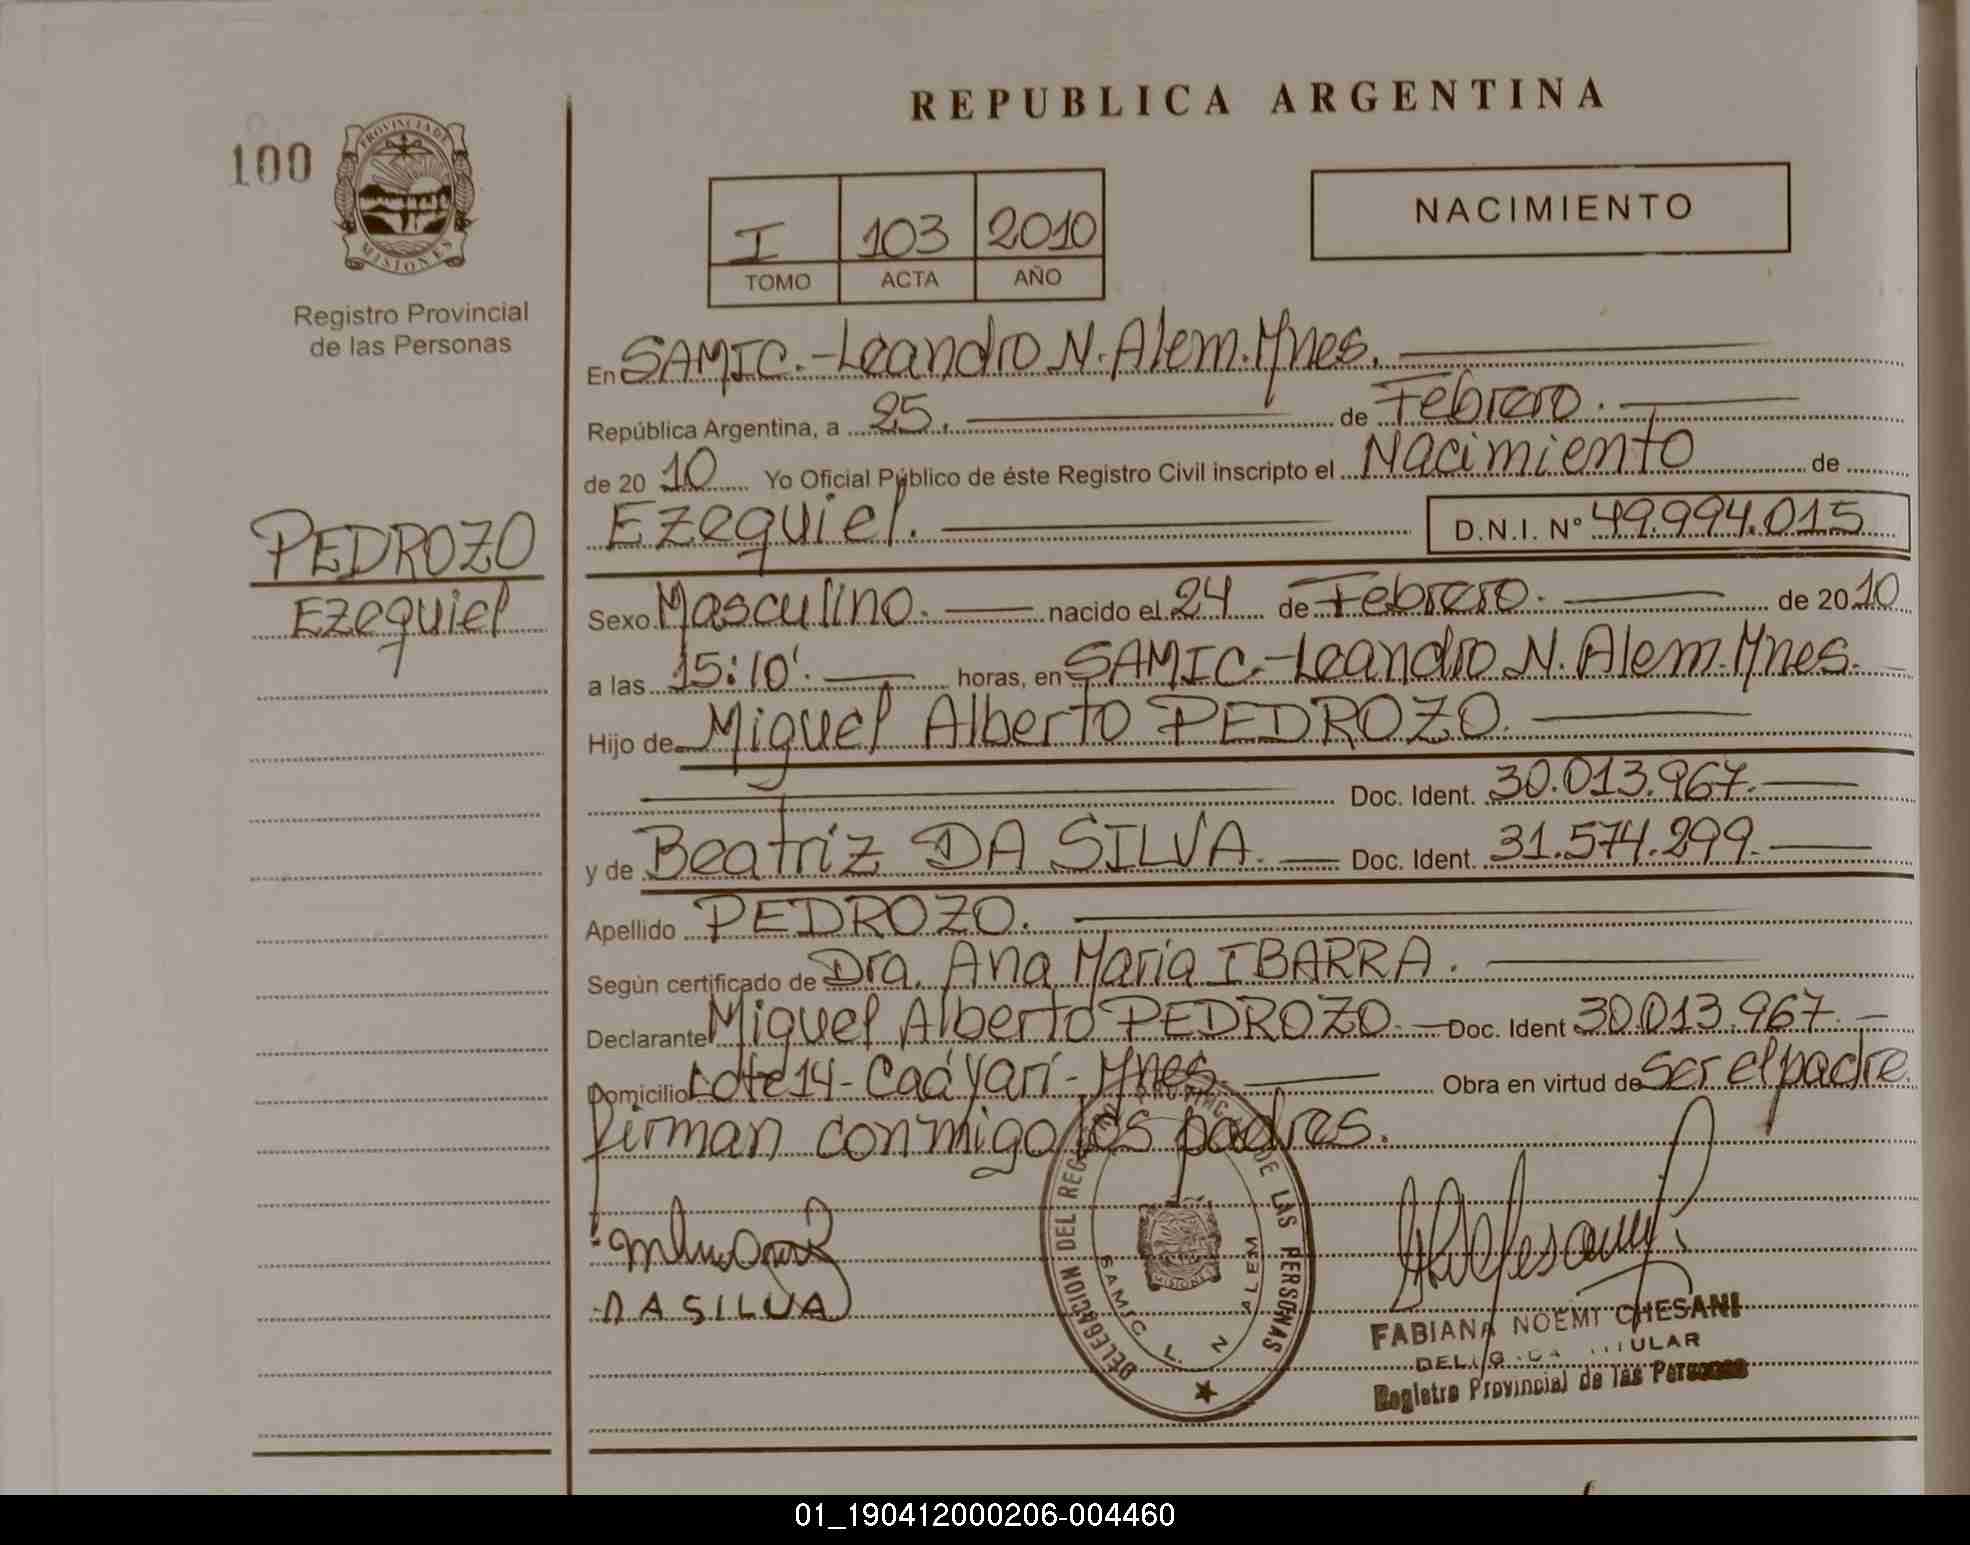 REPUBLICA ARGENTINA
100
PROVINCIA DE
MISIONES
Registro Provincial
de las Personas
I 103 2010
TOMO ACTA AÑO
NACIMIENTO
En SAMIC.-Leandro N. Alem. Mnes.
República Argentina, a 25. de Febrero.
de 20 10 Yo Oficial Público de éste Registro Civil inscripto el Nacimiento de
Ezequiel. D.N.I. Nº 49.994.015
PEDROZO
Ezequiel
Sexo Masculino. nacido el 24 de Febrero. de 20 10
a las 15:10'. horas, en SAMIC.-Leandro N. Alem. Mnes.
Hijo de Miguel Alberto PEDROZO.
Doc. Ident. 30.013.967.
y de Beatriz DA SILVA. Doc. Ident. 31.574.299.
Apellido PEDROZO.
Según certificado de Dra. Ana María IBARRA.
Declarante Miguel Alberto PEDROZO. Doc. Ident 30.013.967.
Domicilio Lote 14 - Caá Yarí - Mnes. Obra en virtud de ser el padre.
firman conmigo los padres.
DELEGACION DEL REG PROVINC DE LAS PERSONAS
SAMIC L. N ALEM
MISIONES
DA SILVA
FABIANA NOEMI CHESANI
TITULAR
Registro Provincial de las Personas
01_190412000206-004460